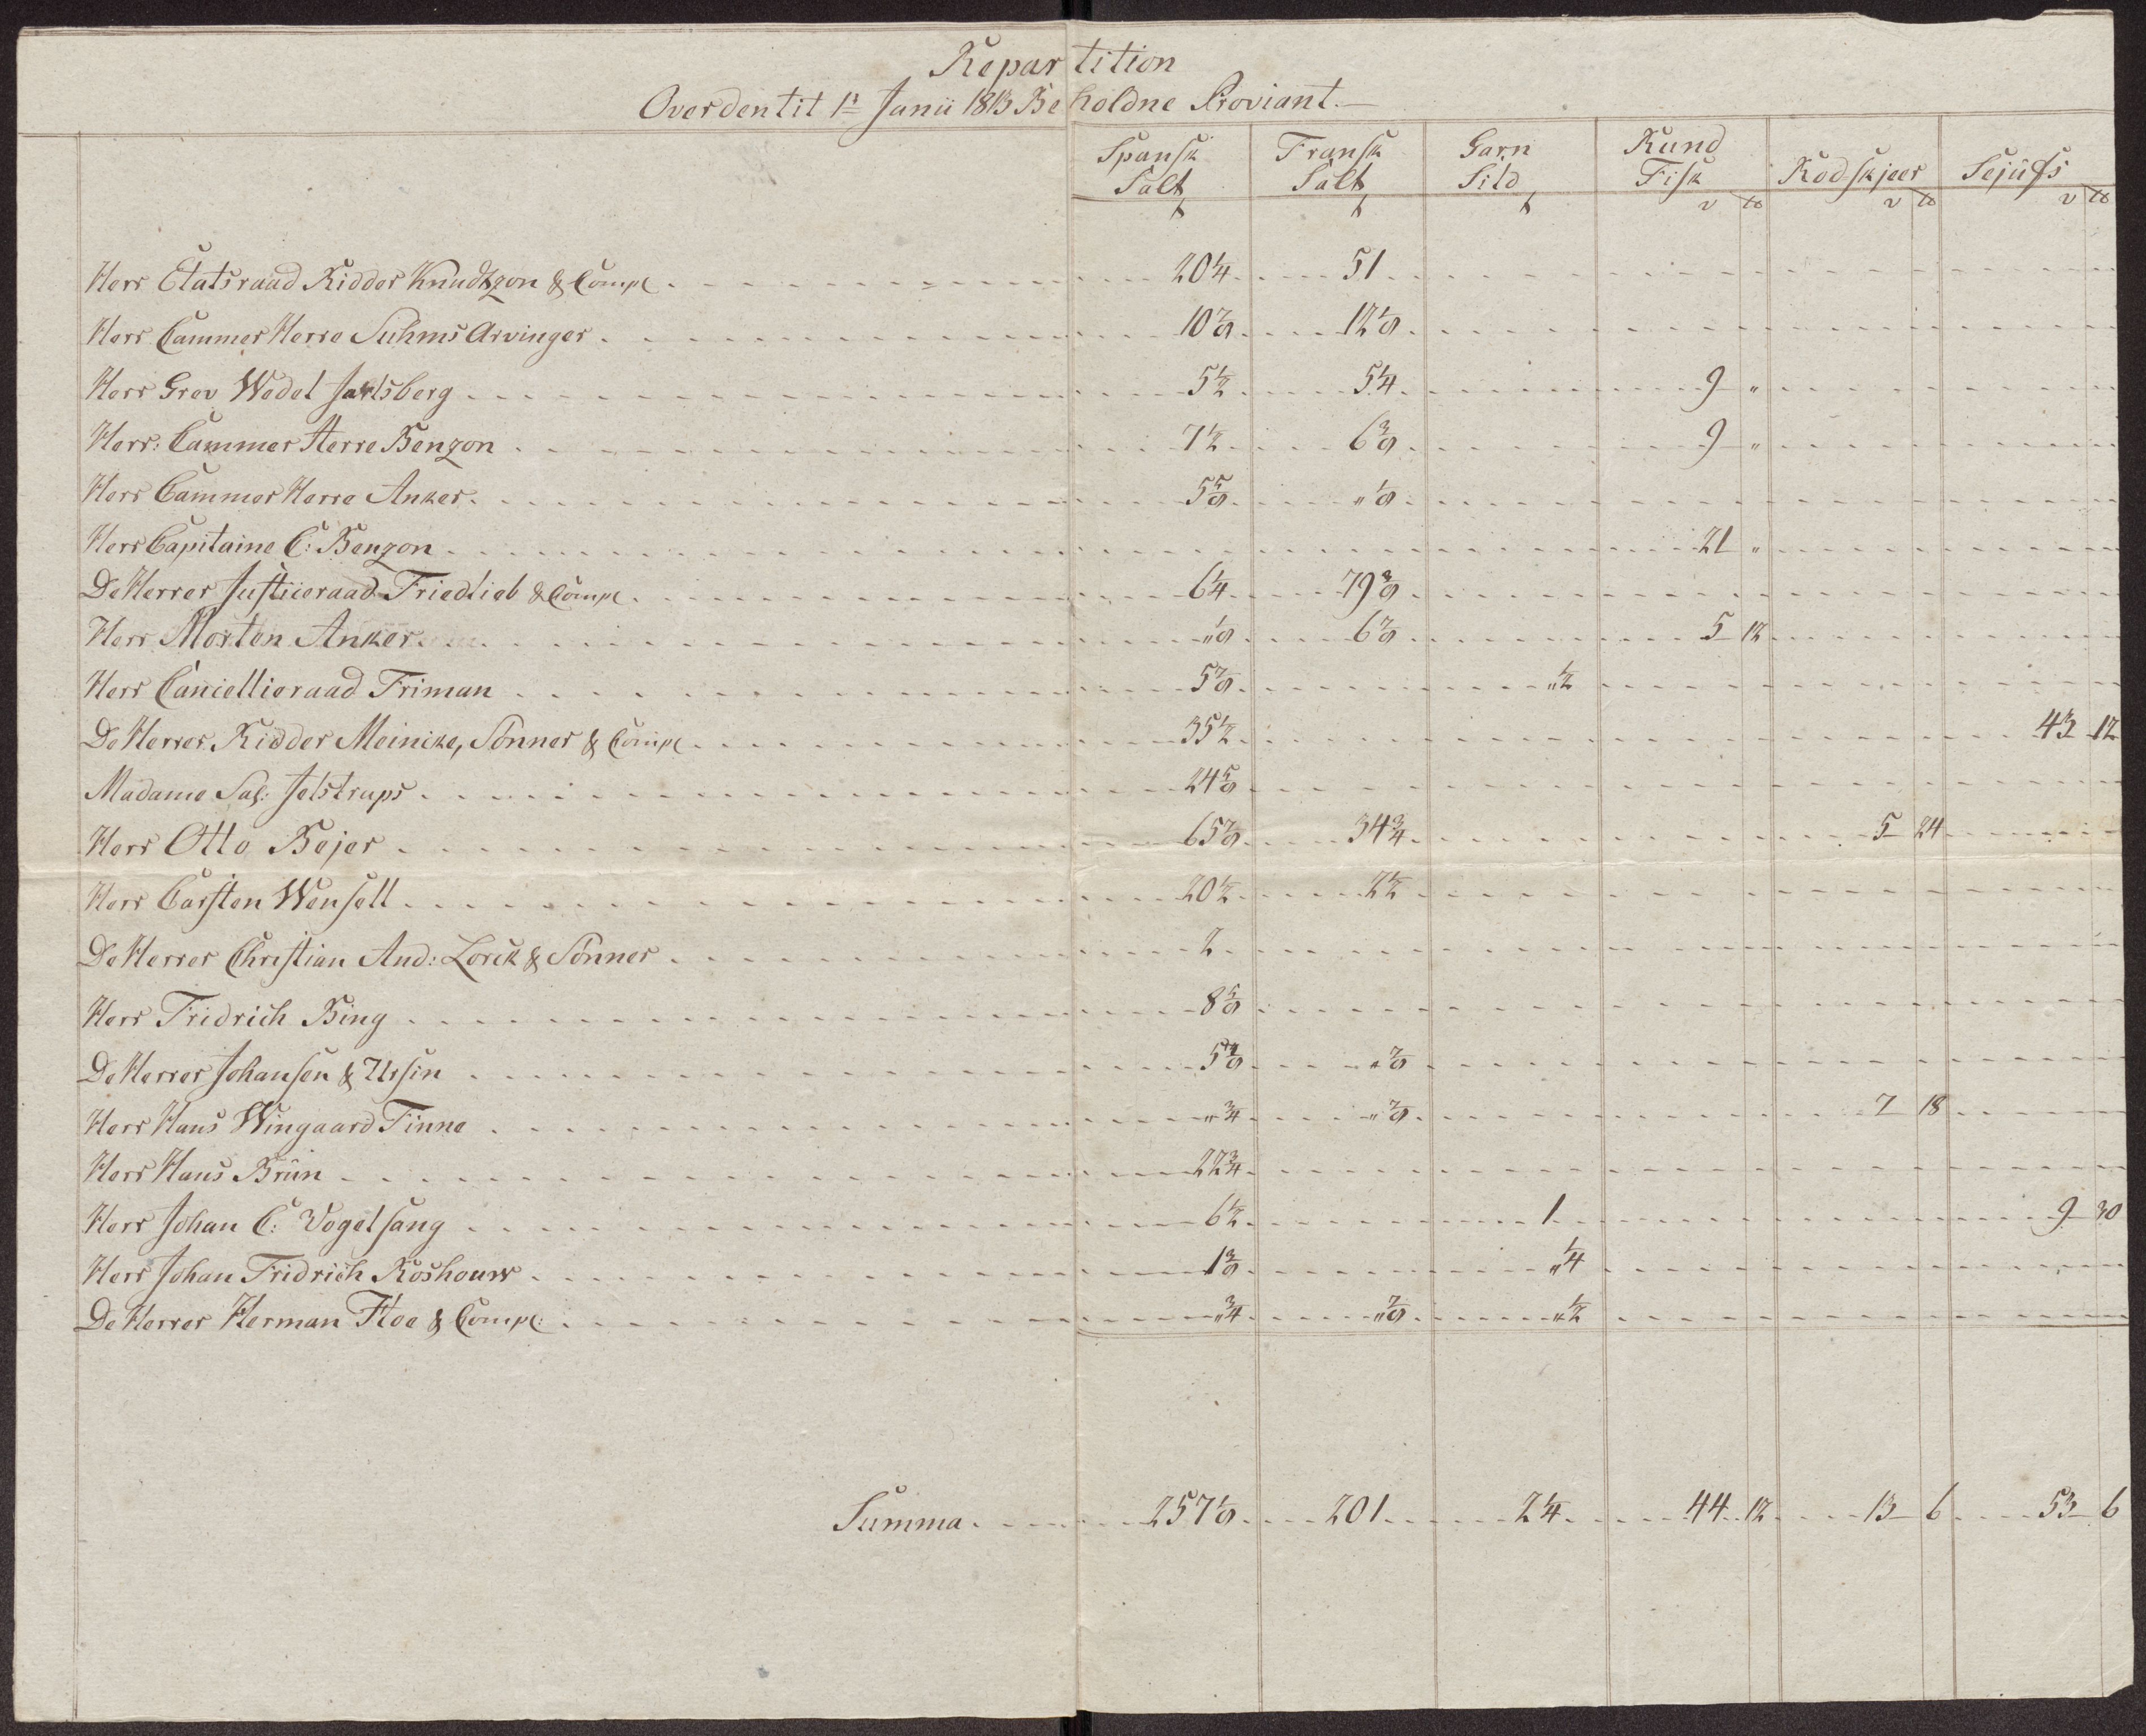 Repartition
Over den til 1ste Junii 1813 Beholdne Proviant.
Spansk Salt
Fransk Salt
Garn Sild
Rund Fisk
Rødskjær
Sejüfs
Herr Etatsraad Ridder Knudtzon & Comp: 20¼ 51
Herr Cammer Herre Suhms Arvinger 10⅞ 12⅛
Herr Grev Wedel Jarlsberg 5½ 5¼ 9 "
Herr: Cammer Herre Benzon 7½ 6⅜ 9 "
Herr Cammer Herre Anker 5⅝ "⅛
Herr Capitaine C: Benzon 21 "
De Herrer Justiceraad Friedlieb & Comp: 6¼ 79⅜
Herr Morten Anker "⅛ 6⅞ 5 12
Herr Cancellieraad Friman 5⅞ "½
De Herrer Ridder Meincke, Sönner & Comp: 35½ 43 12
Madame Sal: Jelstrups 24⅝
Herr Otto Bejer 65⅞ 34¾ 5 24
Herr Carsten Wensell 20½ 2½
De Herrer Christian And: Lorck & Sönner 2
Herr Fridrich Bing 8⅝
De Herrer Johansen & Ursin 5⅞ "⅞
Herr Hans Wingaard Finne "¾ "⅞ 7 18
Herr Hans Brün 22¾
Herr Johan C: Vogelsang 6½ 1 9 30
Herr Johan Fridrich Roshouw 1⅜ "¼
De Herrer Herman Hoe & Comp: "¾ "⅞ "½
Summa 257⅛ 201 2¼ 44 12 13 6 53 6